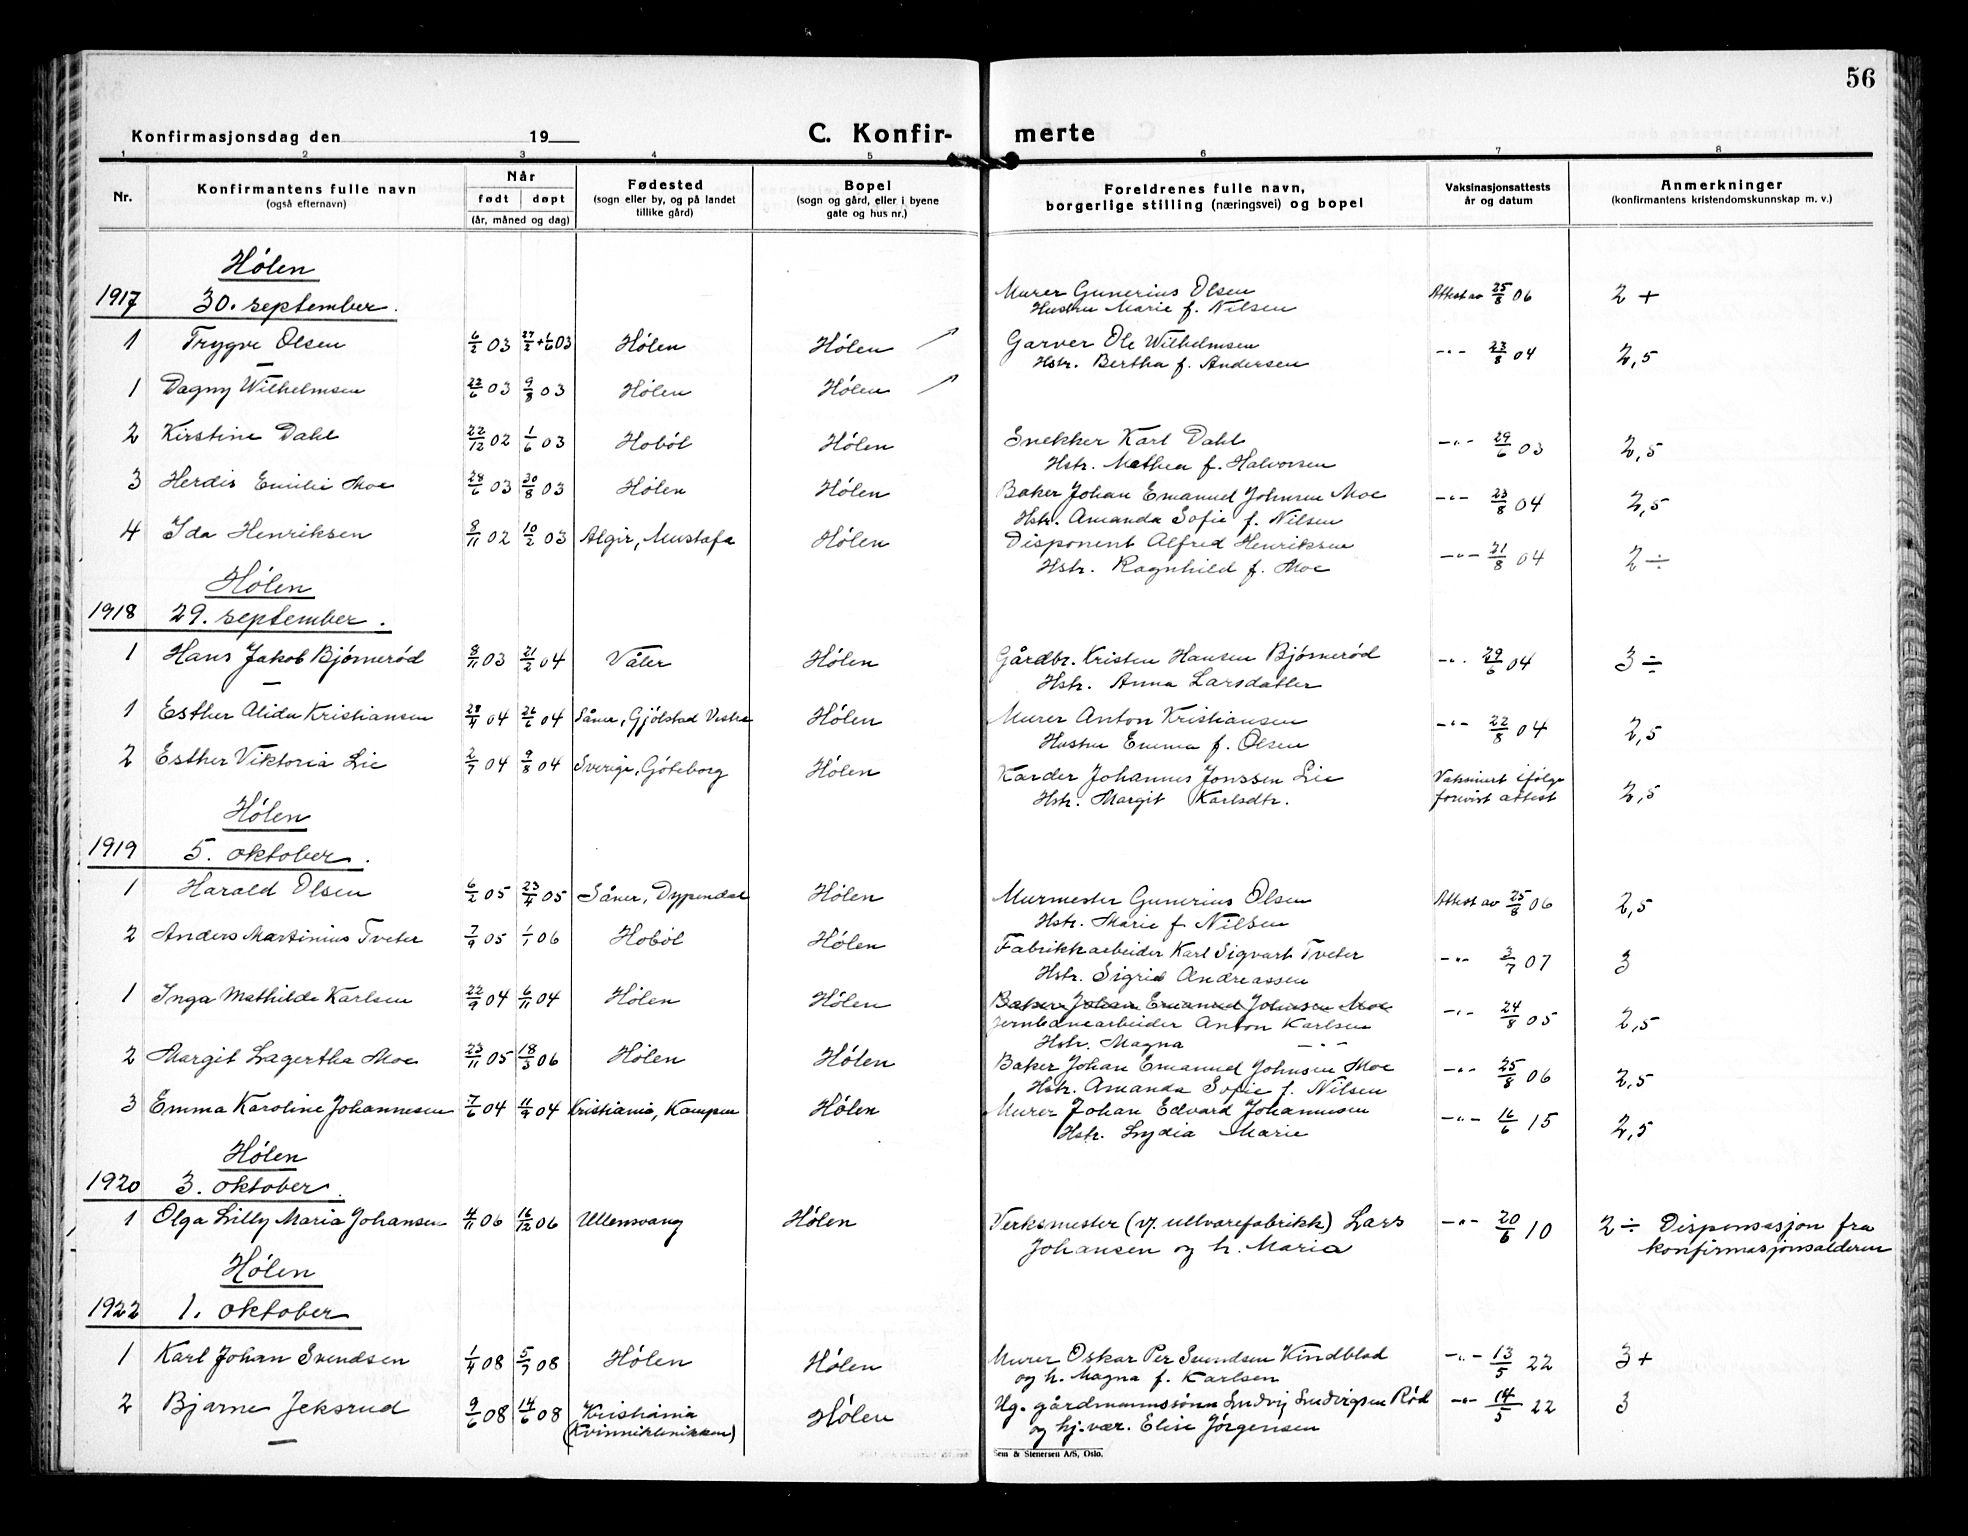 56
Konfirmasjonsdag den 19
C. Konfir- merte
1 2 3 4 5 6 7 8
Nr. Konfirmantens fulle navn (også efternavn) Når født døpt (år, måned og dag) Fødested (sogn eller by, og på landet tillike gård) Bopel (sogn og gård, eller i byene gate og hus nr.) Foreldrenes fulle navn, borgerlige stilling (næringsvei) og bopel Vaksinasjonsattests år og datum Anmerkninger (konfirmantens kristendomskunnskap m. v.)
Hølen
1917 30. september.
1 Trygve Olsen 6/2 03 27/2 + 1/6 03 Hølen Hølen Murer Gunerius Olsen Hustru Marie f. Nilsen Attest av 25/8 06 2 +
1 Dagny Wilhelmsen 22/6 03 9/8 03 Hølen Hølen Garver Ole Wilhelmsen Hstr. Bertha f. Andersen -"- 23/8 04 2,5
2 Kirstine Dahl 22/12 02 1/6 03 Hobøl Hølen Snekker Karl Dahl Hstr. Mathea f. Halvorsen -"- 29/6 03 2,5
3 Herdis Emilie Moe 28/6 03 30/8 03 Hølen Hølen Baker Johan Emanuel Johnsen Moe Hstr. Amanda Sofie f. Nilsen -"- 23/8 04 2,5
4 Ida Henriksen 8/11 02 10/2 03 Algir, Mustafa Hølen Disponent Alfred Henriksen Hstr. Ragnhild f. Moe -"- 21/8 04 2 ÷
Hølen
1918 29. september.
1 Hans Jakob Bjørnerød 8/11 03 21/2 04 Våler Hølen Gårdbr. Kristen Hansen Bjørnerød Hstr. Anna Larsdatter -"- 29/6 04 3 ÷
1 Esther Alida Kristiansen 28/4 04 26/6 04 Såner, Gjølstad Vestre Hølen Murer Anton Kristiansen Hustru Emma f. Olsen -"- 22/8 04 2,5
2 Esther Viktoria Lie 2/7 04 9/8 04 Sverige, Göteborg Hølen Karder Johannes Jonssen Lie Hstr. Margit Karlsdtr. Vaksinert ifølge forevist attest 2,5
Hølen
1919 5. oktober.
1 Harald Olsen 6/2 05 23/4 05 Såner, Dypendal Hølen Murmester Gunerius Olsen Hstr. Marie f. Nilsen Attest av 25/8 06 2,5
2 Anders Martinius Tveter 7/9 05 1/1 06 Hobøl Hølen Fabrikkarbeider Karl Sigvart Tveter Hstr. Sigrid Andreassen -"- 3/7 07 3
1 Inga Mathilde Karlsen 22/9 04 6/11 04 Hølen Hølen Baker Johan Emanuel Johnsen Moe Jernbanearbeider Anton Karlsen Hstr. Magna -"- -"- 24/8 05 2,5
2 Margit Lagertha Moe 23/11 05 18/3 06 Hølen Hølen Baker Johan Emanuel Johnsen Moe Hstr. Amanda Sofie f. Nilsen -"- 25/8 06 2,5
3 Emma Karoline Johannesen 7/6 04 11/9 04 Kristiania, Kampen Hølen Murer Johan Edvard Johannesen Hstr. Lydia Marie -"- 16/6 15 2,5
Hølen
1920 3. oktober.
1 Olga Lilly Maria Johansen 4/11 06 16/12 06 Ullensvang Hølen Verksmester (v/ ullvarefabrikk) Lars Johansen og h. Maria -"- 20/6 10 2 ÷ Dispensasjon fra konfirmasjonsalderen
Hølen
1922 1. oktober
1 Karl Johan Svendsen 1/4 08 5/7 08 Hølen Hølen Murer Oskar Per Svendsen Kindblad og h. Magna f. Karlsen -"- 13/5 22 3+
2 Bjarne Jeksrud 9/6 08 14/6 08 Kristiania (Kvinneklinikken) Hølen Ug. gårdmannssønn Ludvig Ludvigsen Rød og hj.vær. Elise Jørgensen -"- 14/5 22 3
Sem & Stenersen A/S, Oslo.